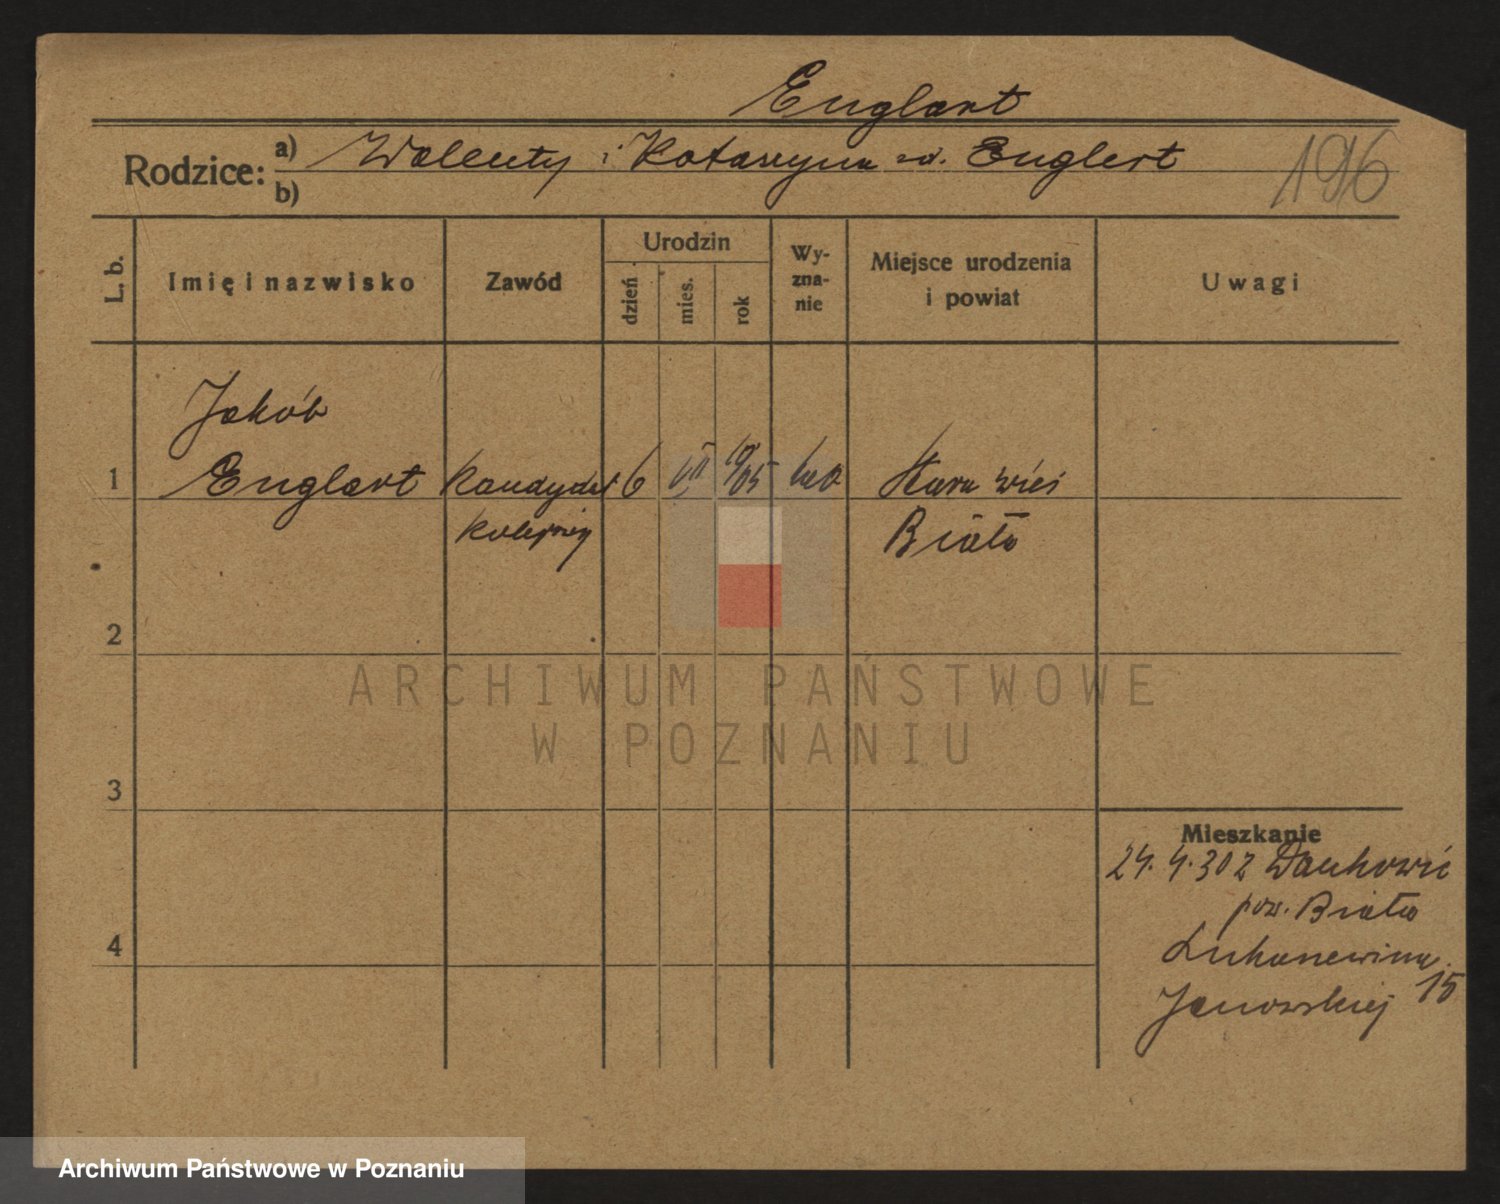 Englart
Rodzice: a) Walenty i Katarzyna zd. Englert
b)
196
L. b.
Imię i nazwisko
Zawód
Urodzin
dzień
mies.
rok
Wy-
zna-
nie
Miejsce urodzenia
i powiat
Uwagi
Jakób
1 Englart Kandydat 6 VII 1905 Stara wieś
kolejowy Biała
2
ARCHIWUM PAŃSTWOWE
W POZNANIU
3
Mieszkanie
24.4.30 z
pow. Biała
4
Janowskiej 15
Archiwum Państwowe w Poznaniu